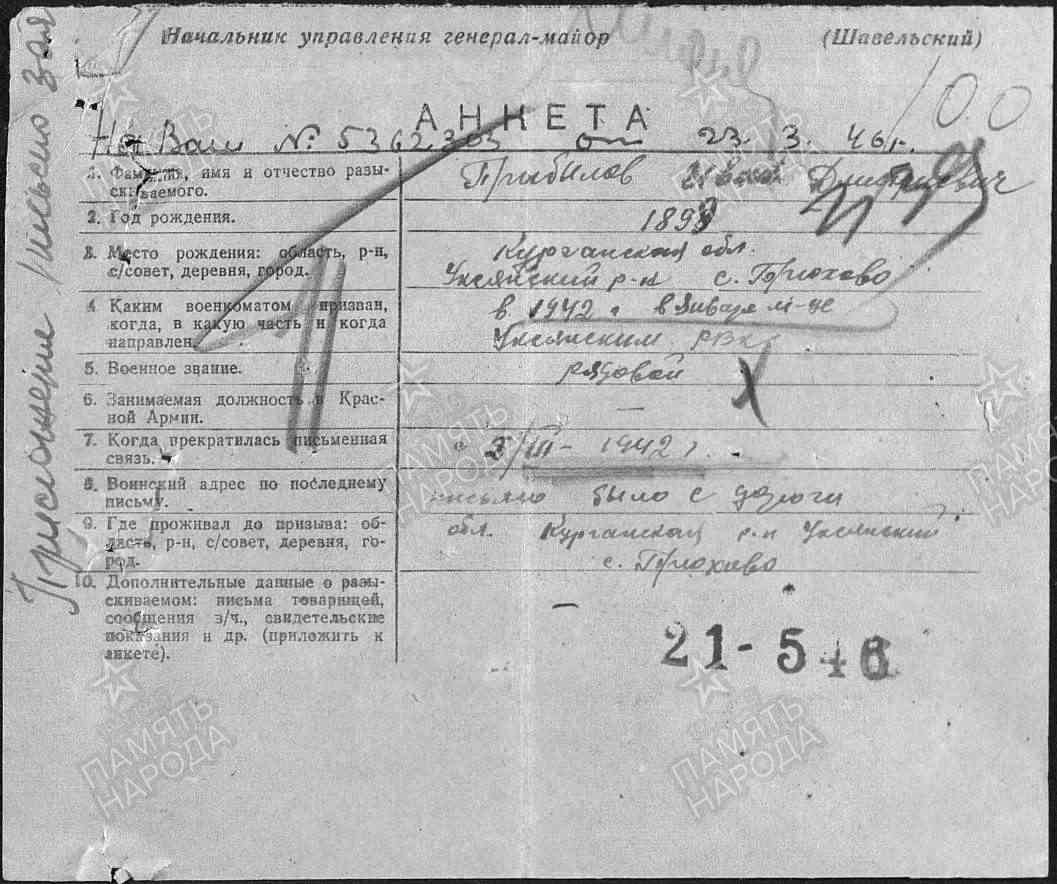 Начальник управления генерал-майор (Шавельский)
АНКЕТА
100
На Ваш № 5362303 от 23.3.46г.
1. Фамилия, имя и отчество разы-
скиваемого.
Прибылов Дмитриевич
2. Год рождения.
189
3. Место рождения: область, р-н,
с/совет, деревня, город.
Курганская обл.
Уксянский р-н с.
4. Каким военкоматом призван,
когда, в какую часть и когда
направлен.
в 1942 г в январе м-це
Уксянским РВК
5. Военное звание.
рядовой
6. Занимаемая должность в Крас-
ной Армии.
—
7. Когда прекратилась письменная
связь.
/III - 1942 г.
8. Воинский адрес по последнему
письму.
письмо было с дороги
9. Где проживал до призыва: об-
ласть, р-н, с/совет, деревня, го-
род.
обл. Курганская р-н Уксянский
с.
10. Дополнительные данные о разы-
скиваемом: письма товарищей,
сообщения з/ч., свидетельские
показания и др. (приложить к
анкете).
—
21-546
Приложение письмо
ПАМЯТЬ НАРОДА
ПАМЯТЬ НАРОДА
ПАМЯТЬ НАРОДА
ПАМЯТЬ НАРОДА
ПАМЯТЬ НАРОДА
ПАМЯТЬ НАРОДА